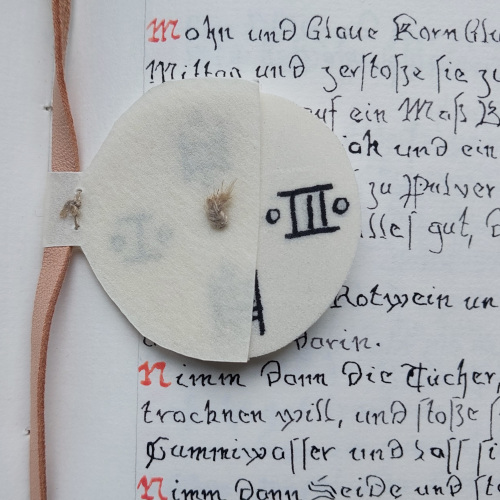 Mohn und Glaue KornGlu
Mitten und zerſtoße ſie zu
auf ein Maß
und ein
III
zu Pulver
alleſ gut, D
Rotwein un
darin.
Nimm Dann Die Tücher,
trocknen will, und ſtoße ſ
Gummiwaſſer und laſſ ſi
Nimm Dann Seide und ſto